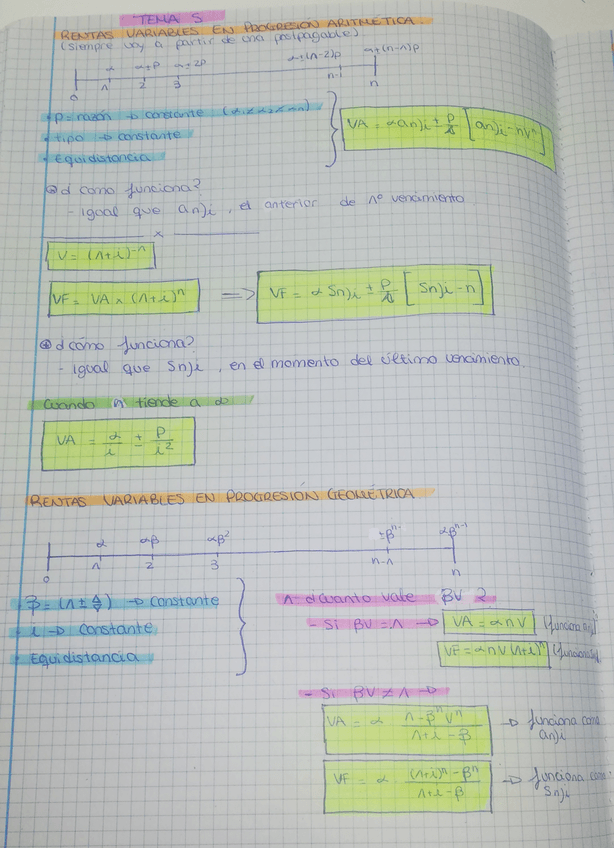 TEMA 5
RENTAS VARIABLES EN PROGRESIÓN ARITMÉTICA.
(siempre voy a partir de una postpagable)
α α+p α+2p α+(n-2)p α+(n-1)p
0 1 2 3 n-1 n
· p = razón → constante
· tipo → constante
· Equidistancia
VA = α an⌉i ± p/i [an⌉i - nVⁿ]
¿cómo funciona?
- igual que an⌉i, el anterior de 1º vencimiento.
x
V = (1+i)⁻ⁿ
VF = VA x (1+i)ⁿ ⇒ VF = α Sn⌉i ± p/i [Sn⌉i - n]
¿cómo funciona?
- igual que Sn⌉i, en el momento del último vencimiento.
Cuando n tiende a ∞
VA = α/i ± p/i²
RENTAS VARIABLES EN PROGRESIÓN GEOMÉTRICA
α αβ αβ² αβⁿ⁻¹
0 1 2 3 n-1 n
→ constante
· i → constante
· Equidistancia
1- ¿cuánto vale βV?
- Si βV = 1 → VA = α n V (funciona an⌉i)
VF = α n V (1+i)ⁿ
- Si βV ≠ 1 →
VA = α (1-βⁿVⁿ)/(1+i-β) → funciona como an⌉i
VF = α ((1+i)ⁿ-βⁿ)/(1+i-β) → funciona como Sn⌉i